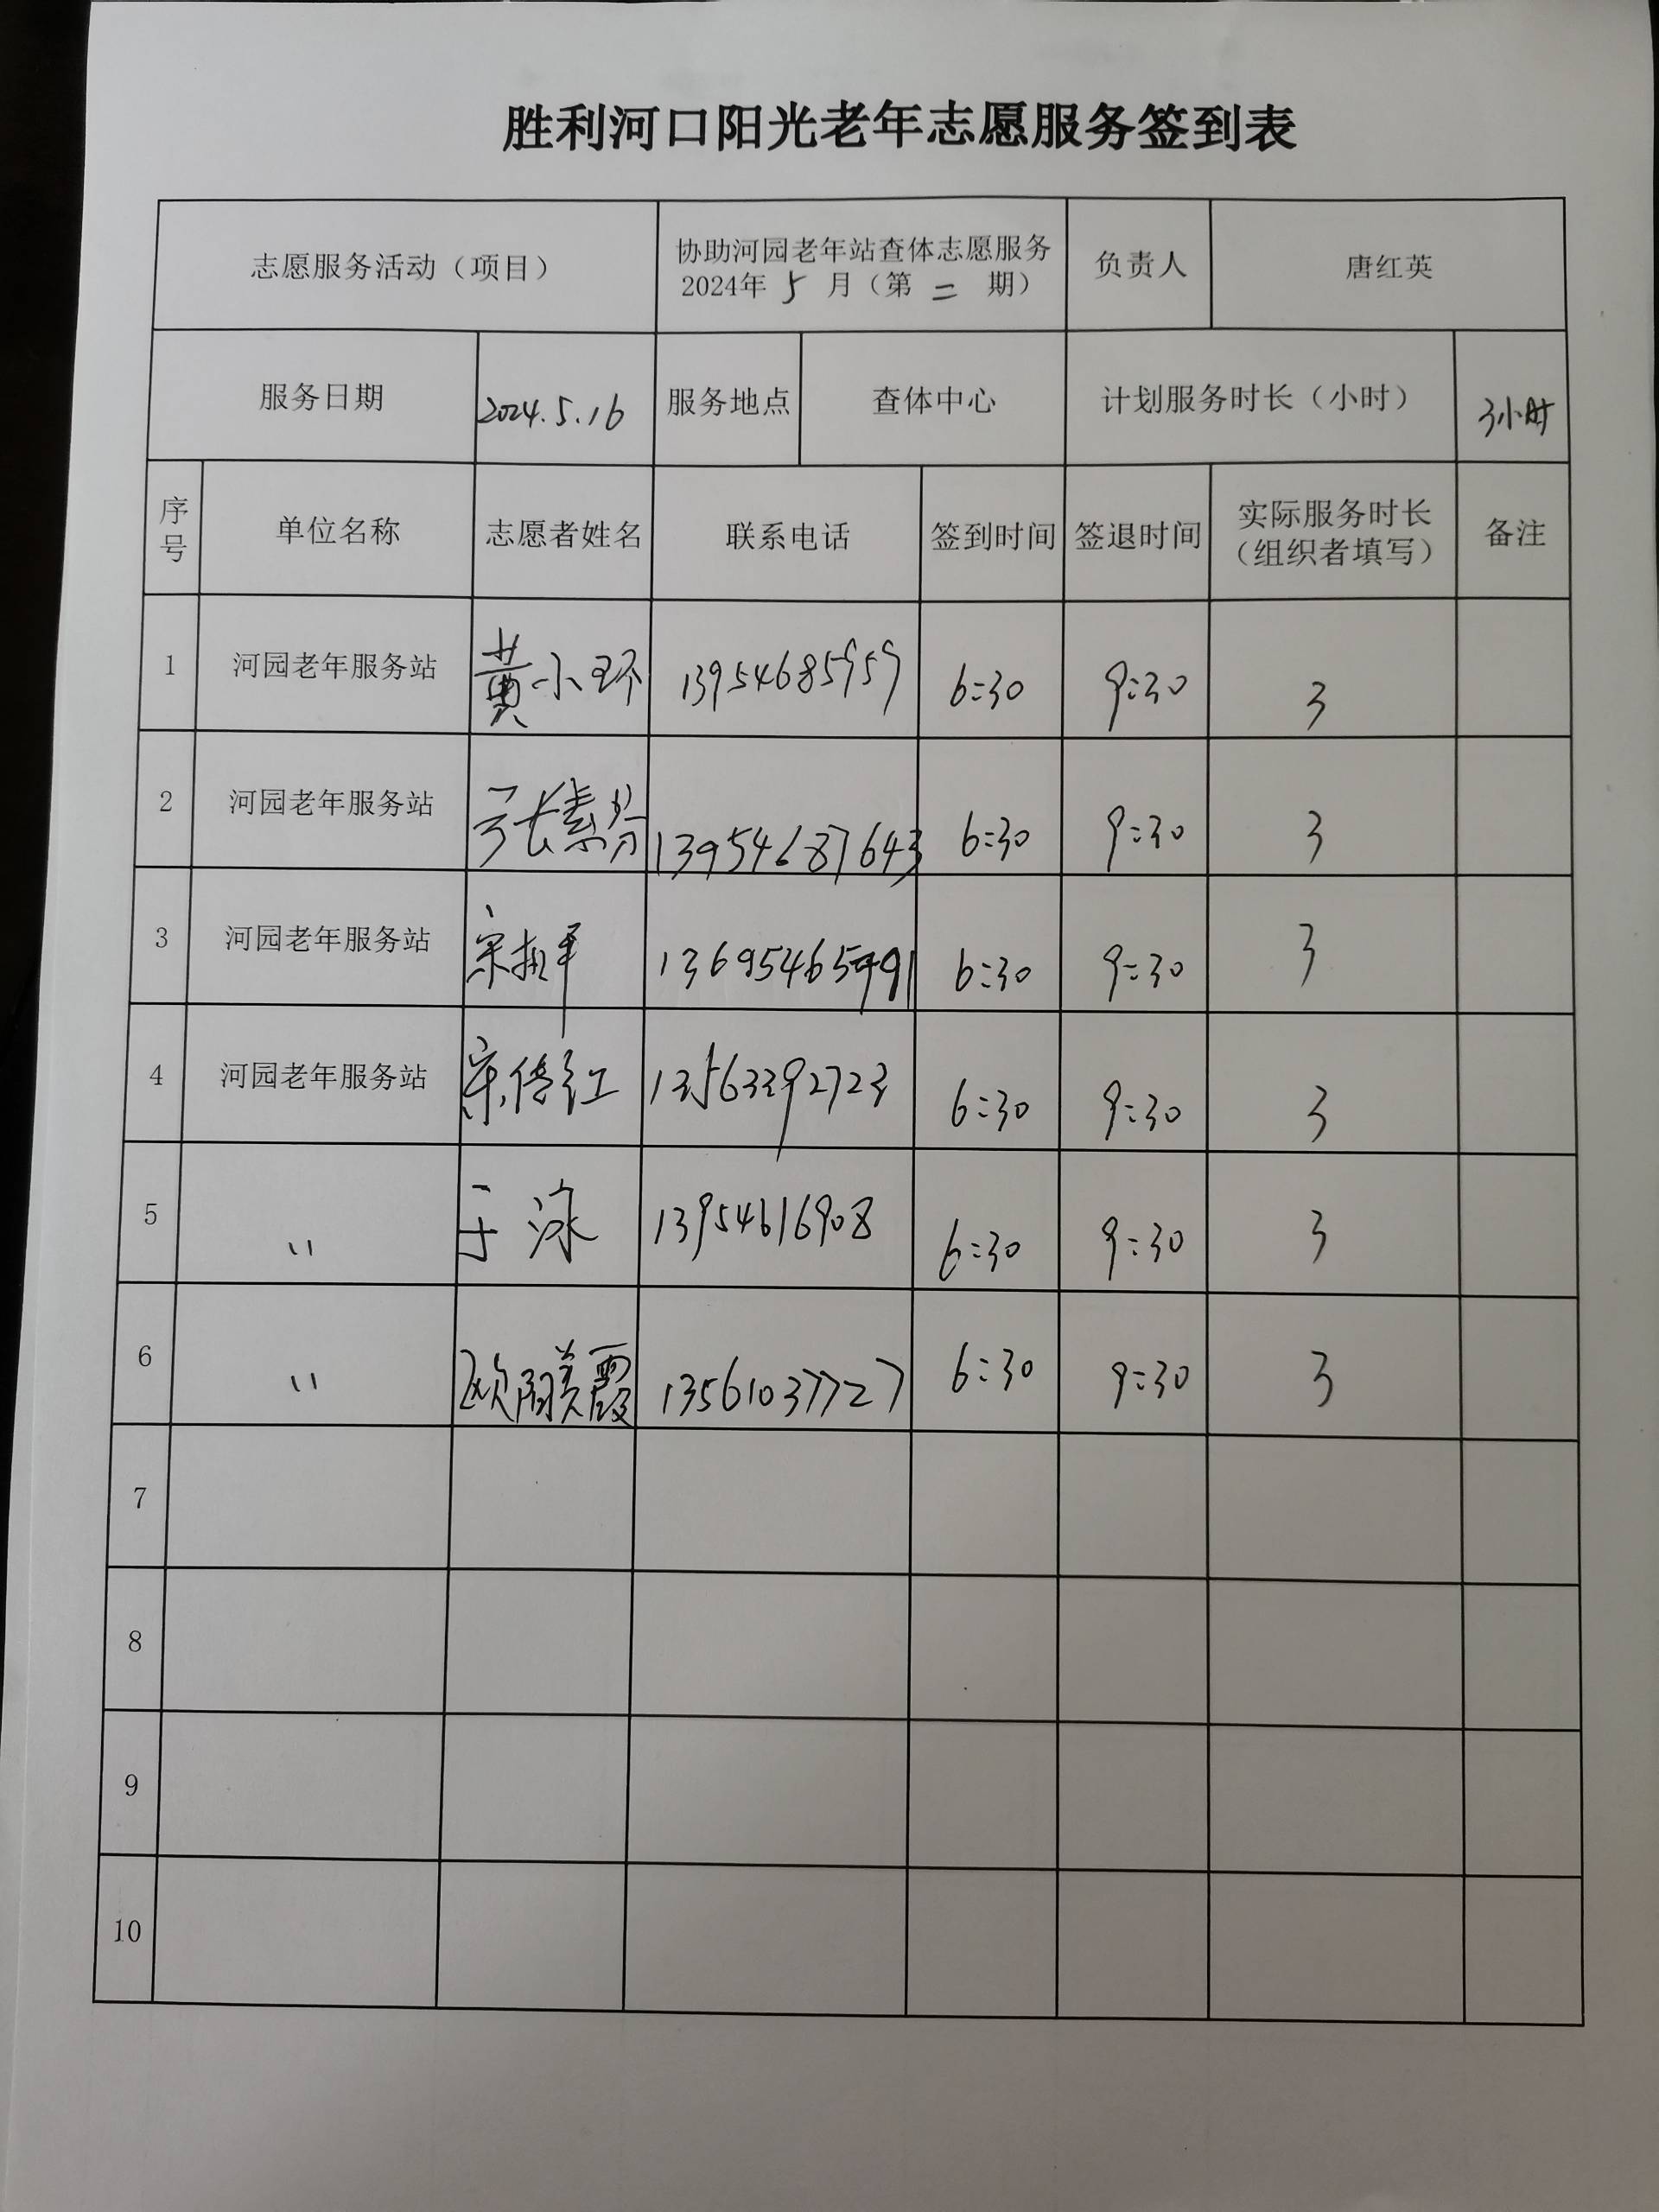 胜利河口阳光老年志愿服务签到表
志愿服务活动（项目） 协助河园老年站查体志愿服务 2024年 5 月（第 二 期） 负责人 唐红英
服务日期 2024.5.16 服务地点 查体中心 计划服务时长（小时） 3小时
序号 单位名称 志愿者姓名 联系电话 签到时间 签退时间 实际服务时长（组织者填写） 备注
1 河园老年服务站 黄小环 13954685959 6:30 9:30 3
2 河园老年服务站 张素芬 13954687643 6:30 9:30 3
3 河园老年服务站 宋 平 6:30 9:30 3
4 河园老年服务站 宋传红 13563392723 6:30 9:30 3
5 〃 于泳 13954616908 6:30 9:30 3
6 〃 欧阳美霞 13561037727 6:30 9:30 3
7
8
9
10